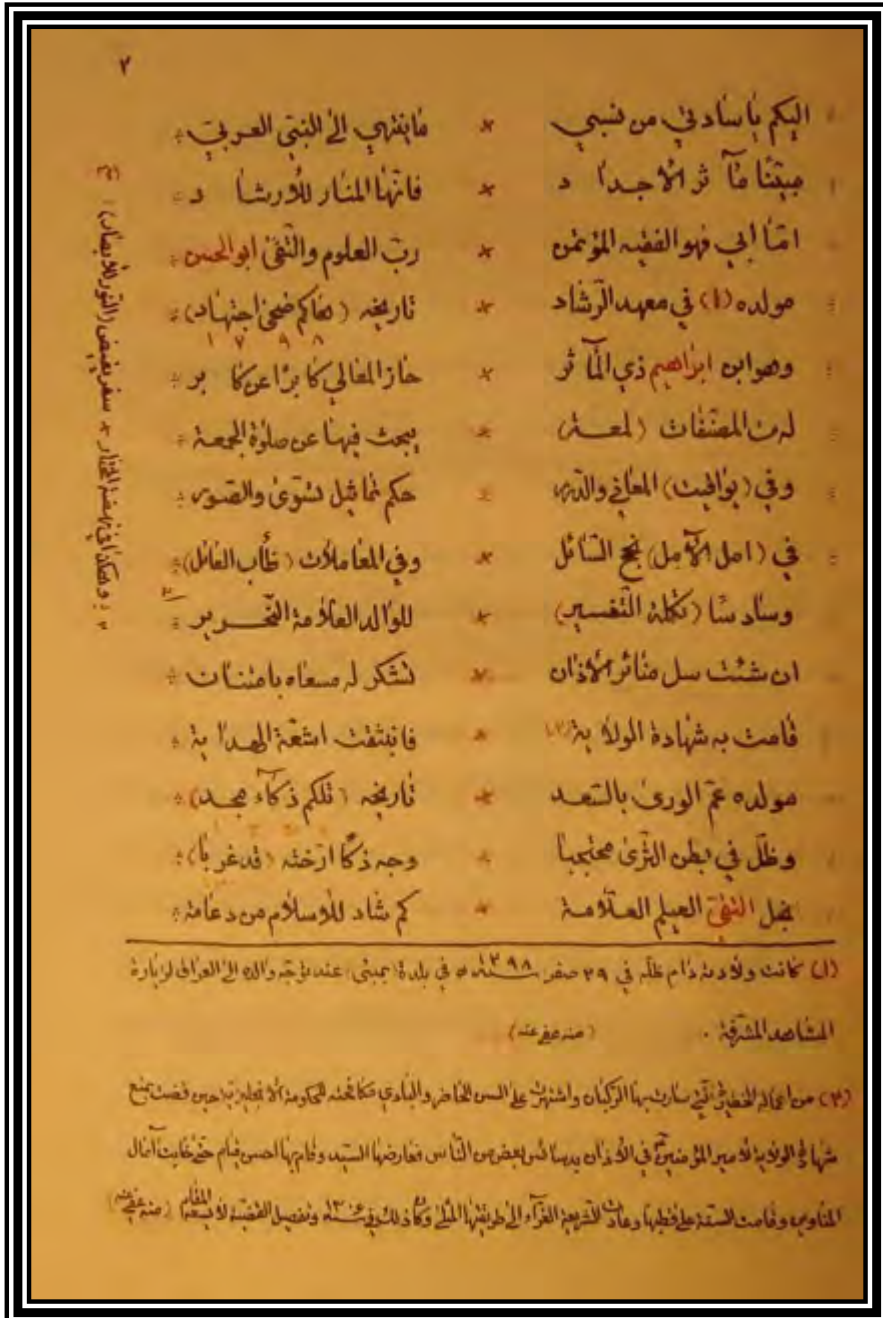 ٢
اليكم يا سادتي من نسبي * ما ينتهي الى النبي العربي
مآثر الاجداد * فانها المنار للارشاد
امّا ابي فهو الفقيه المؤتمن * ربّ العلوم والتقى ابو الحسن
مولده (١) في معهد الرّشاد * تاريخه ( ضحى اجتهاد)
١ ٧ ٩ ٨
وهو ابن ابراهيم ذي المآثر * حاز المعالي كابرًا عن كابر
له من المصنّفات (لمعة) * يبحث فيها عن صلوة الجمعة
وفي (يواقيت) المعاني والدرر * حكم تماثيل تسوّى والصور
في (امل الآمل) نجح السّائل * وفي المعاملات (طاب العائل)
وسادسًا (تكملة التّفسير) * للوالد العلامة النّحرير
ان شئت سل منائر الأذان * تشكر له مسعاه بامتنان
قامت به شهادة الولاية (٢) * فانبثقت اشعّة الهداية
مولده عمّ الورى بالسّعد * تاريخه (تلكم ذكآء مجد)
وظلّ في بطن الثرى محتجبا * وجه ذكا ارّخته (قد غربا)
نجل التقيّ العيلم العلّامة * كم شاد للاسلام من دعامة
(١) كانت ولادته دام ظلّه في ٢٩ صفر سنة ١٢٩٨ ه في بلدة (بمبئي) عند توجّه والده الى العراق لزيارة
المشاهد المشرّفة . (منه عفي عنه)
(٢) من اعماله الخطيرة التي سارت بها الركبان واشتهرت على السن الحاضر والبادي مكافحته للحكومة الانجليزية حين قضت بمنع
شهادة الولاية لامير المؤمنين في الاذان بدسائس بعض من النّاس فعارضها السيّد وقام بها احسن قيام حتى خابت آمال
وقامت السنّة على قطبها وعادت الشريعة الغرّآء الى طريقتها المثلى وكان ذلك في سنة وتفصيل القضيّة لا يسعه المقام (منه عفي عنه)
وهكذا في نهضة المختار * سفر يفيض (النور للابصار)